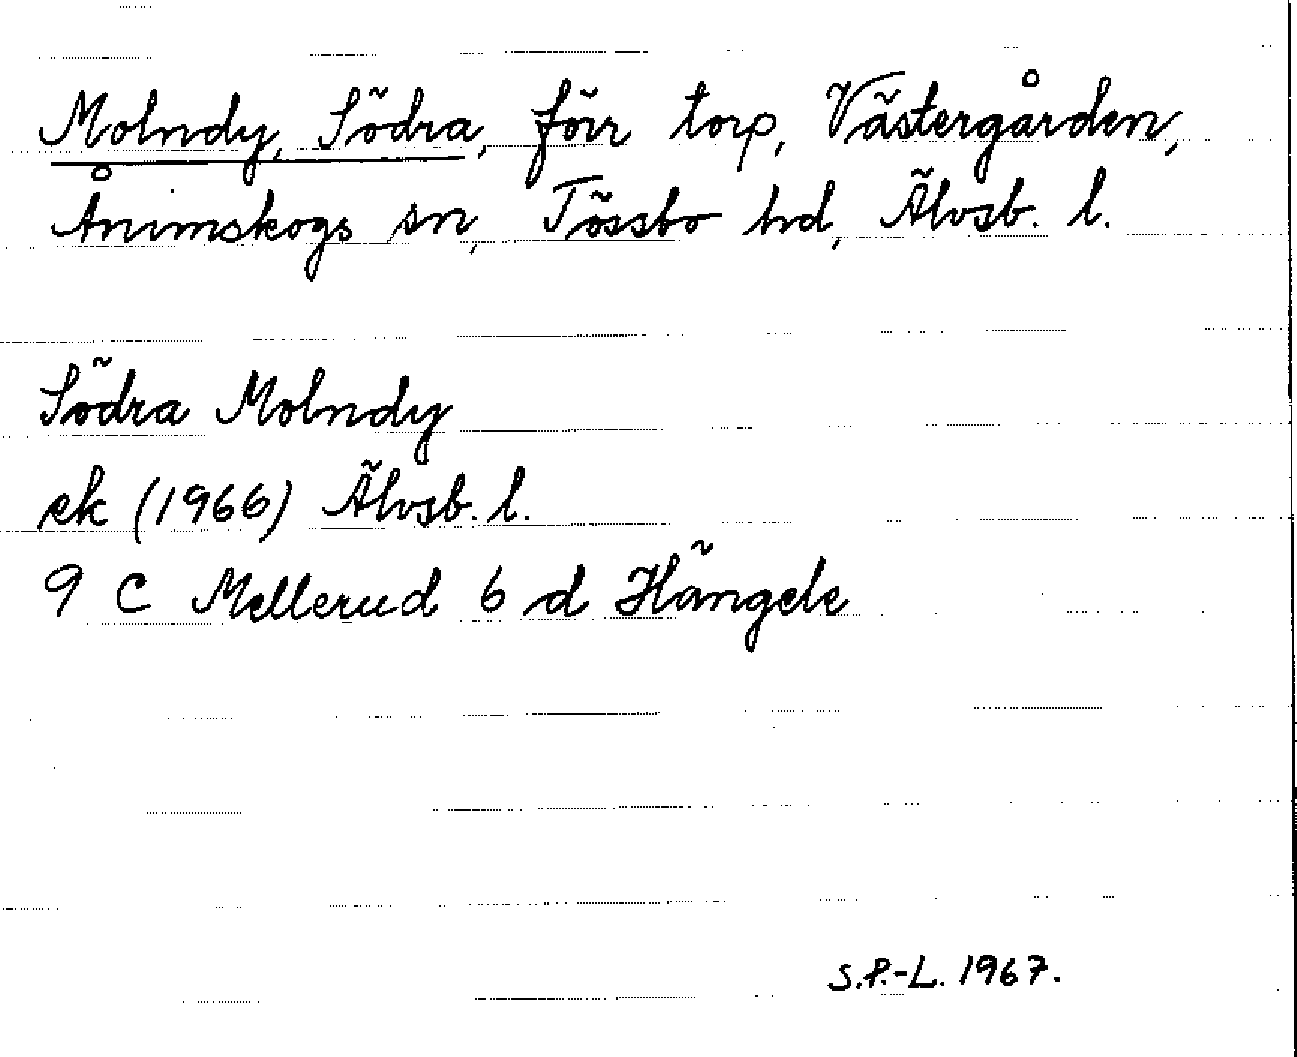 Molndy, Södra, förr torp, Västergården,
Ånimskogs sn, Tössbo hd, Älvsb. l.
Södra Molndy
ek (1966) Älvsb. l.
9 C Mellerud 6 d Hängele
S.P.-L. 1967.